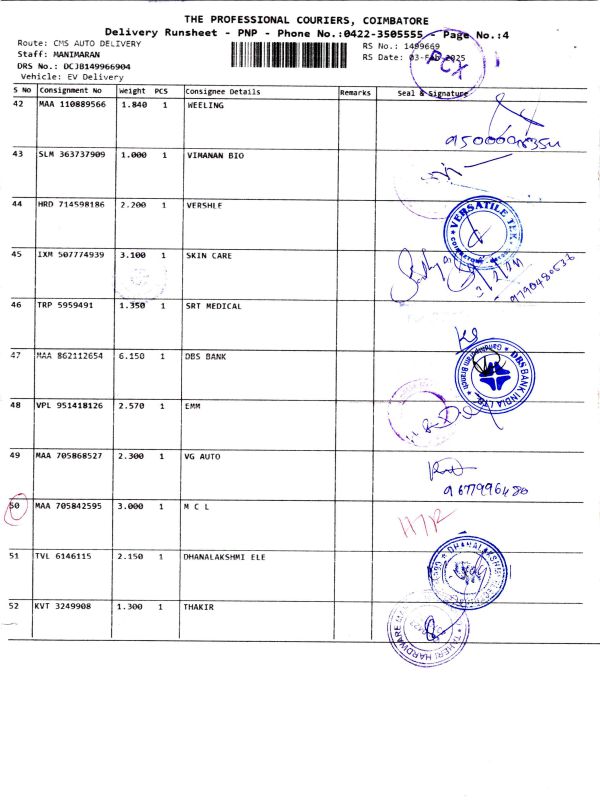 THE PROFESSIONAL COURIERS, COIMBATORE
Delivery Runsheet - PNP - Phone No.:0422-3505555 - Page No.:4
Route: CMS AUTO DELIVERY RS No.: 1499669
Staff: MANIMARAN RS Date: 03-Feb-2025
DRS No.: DCJB149966904
Vehicle: EV Delivery
PCX
S No Consignment No Weight PCS Consignee Details Remarks Seal & Signature
42 MAA 110889566 1.840 1 WEELING
43 SLM 363737909 1.000 1 VIMANAN BIO
44 HRD 714598186 2.200 1 VERSHLE
VERSATILE TEK
45 IXM 507774939 3.100 1 SKIN CARE
46 TRP 5959491 1.350 1 SRT MEDICAL
47 MAA 862112654 6.150 1 DBS BANK
DBS BANK INDIA LTD.
Gandhipuram Branch
48 VPL 951418126 2.570 1 EMM
49 MAA 705868527 2.300 1 VG AUTO
9677996480
50 MAA 705842595 3.000 1 M C L
51 TVL 6146115 2.150 1 DHANALAKSHMI ELE
52 KVT 3249908 1.300 1 THAKIR
TAHERI HARDWARE